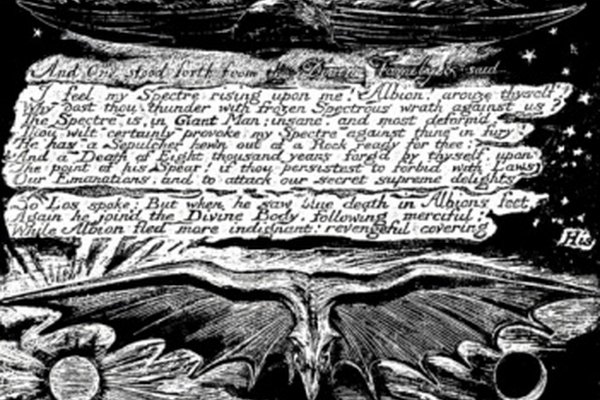 And One stood forth from the Divine Family & said
I feel my Spectre rising upon me! Albion! arouze thyself!
Why dost thou thunder with frozen Spectrous wrath against us?
The Spectre is, in Giant Man; insane, and most deform'd.
Thou wilt certainly provoke my Spectre against thine in fury!
He has a Sepulcher hewn out of a Rock ready for thee:
And a Death of Eight thousand years forg'd by thyself, upon
The point of his Spear! if thou persistest to forbid with Laws
Our Emanations, and to attack our secret supreme delights
So Los spoke: But when he saw blue death in Albions feet,
Again he join'd the Divine Body, following merciful;
While Albion fled more indignant: revengeful covering
His